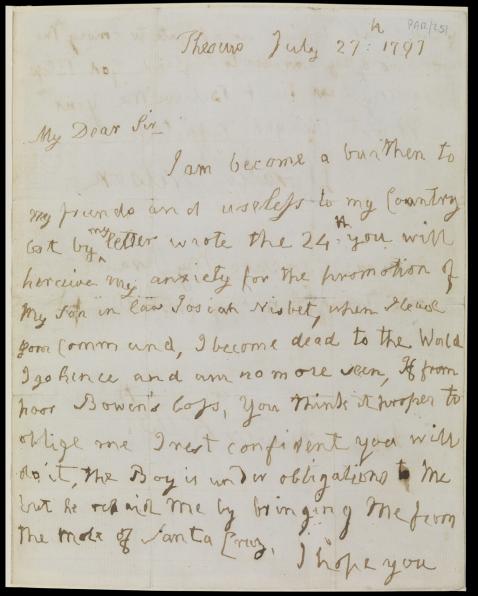 PAR/251
Theseus July 27th: 1797
My Dear Sir
I am become a burthen to
my friends and useless to my Country
but by my letter wrote the 24th you will
perceive my anxiety for the promotion of
My son in law Josiah Nisbet, when I leave
your Command, I become dead to the World
I go hence and am no more seen, If from
poor Bowen's loss, You think it proper to
oblige me I rest confident you will
do it, the Boy is under obligations to Me
but he repaid Me by bringing Me from
the Mole of Santa Cruz.
I hope you